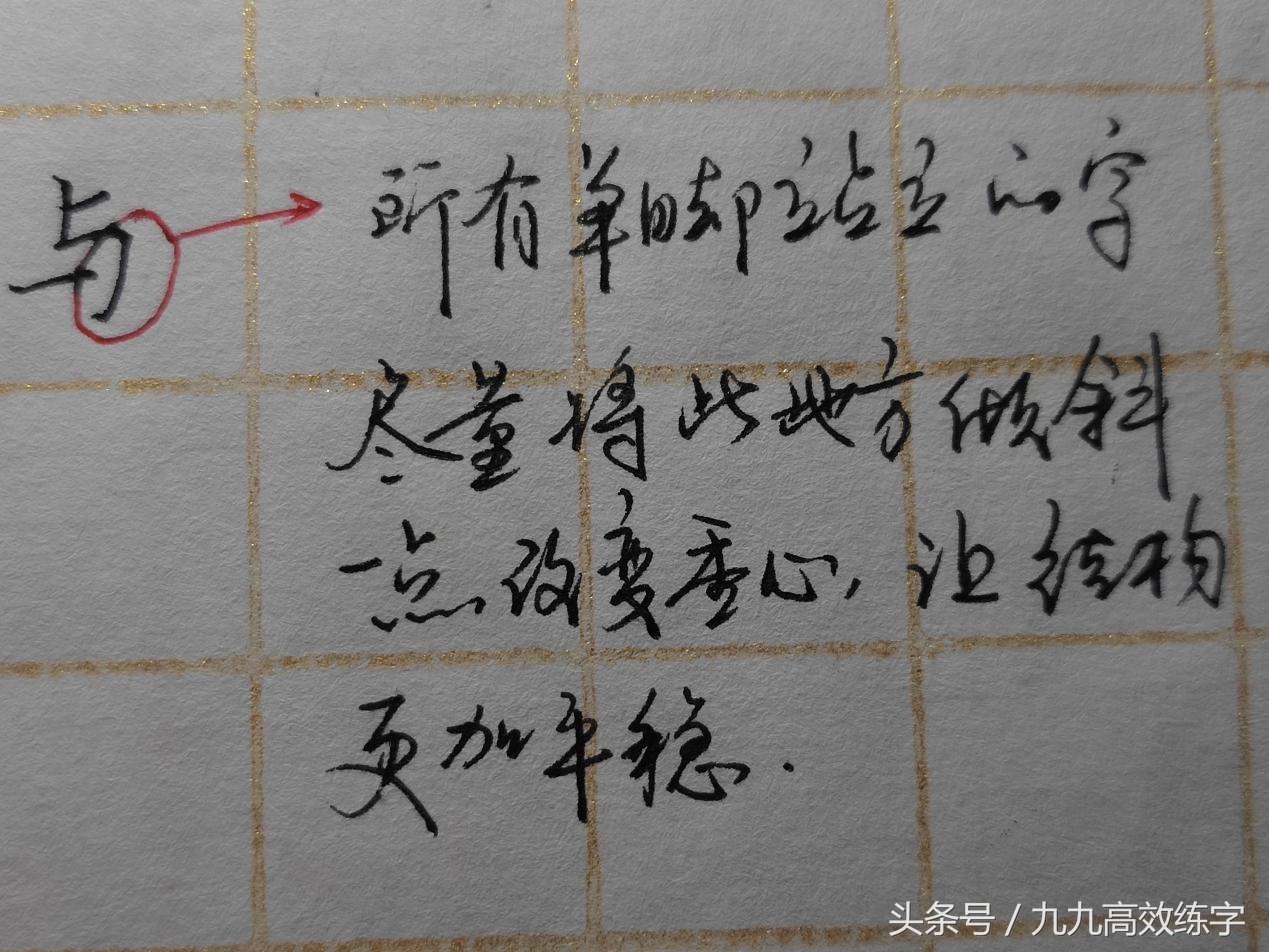 与
所有单脚站立的字
尽量将此地方倾斜
一点,改变重心,让结构
更加平稳.
头条号／九九高效练字